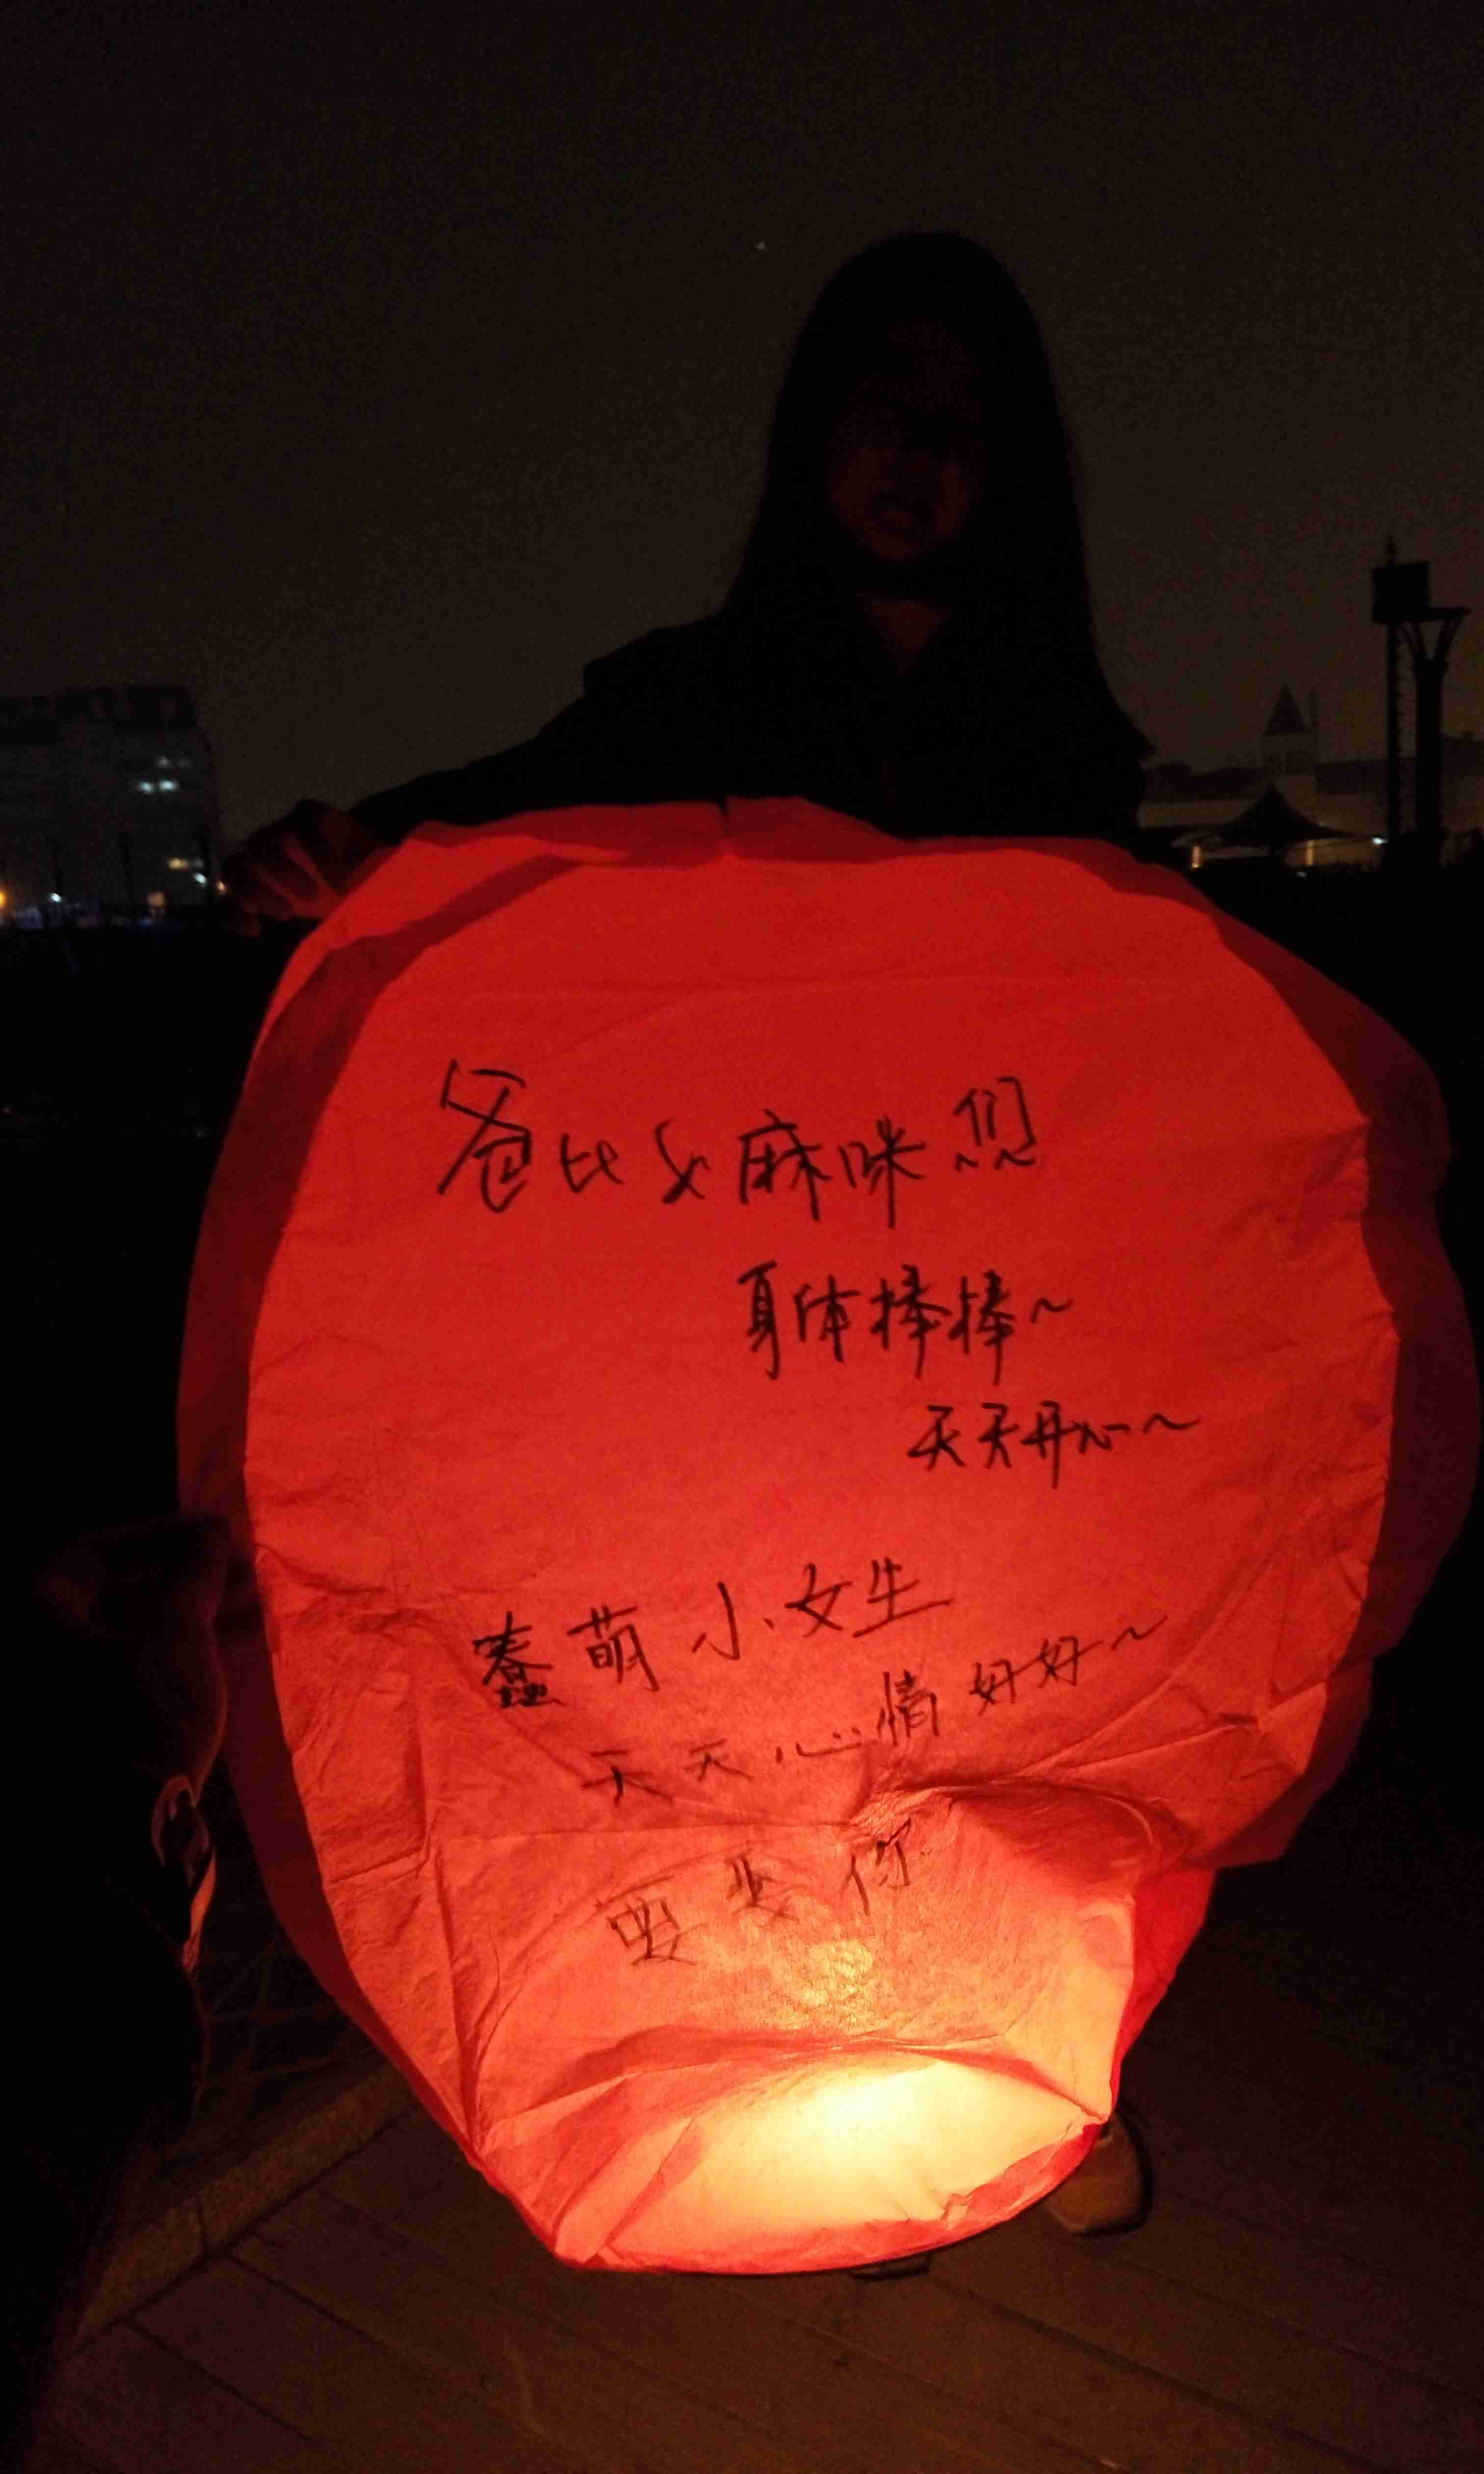 爸比&麻咪们
身体棒棒~
天天开心~
蠢萌小女生
天天心情好好~
要
你